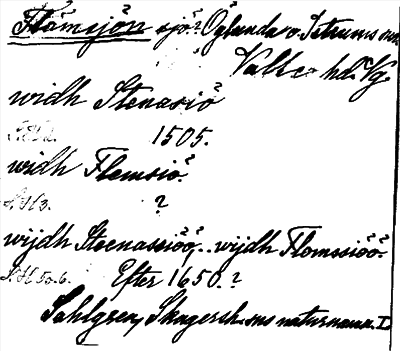 Flämsjön sjö? Öglunda o. Istrums snr
Valle hd. Vg.
widh Stenasiö
1505.
widh Flemsiö.
S.H 3. ?
wijdh Steenassiöö, wijdh Flomssiöö.
S.H 5o.6. Efter 1650.?
Sahlgren, Skagersh. sns naturnamn. I